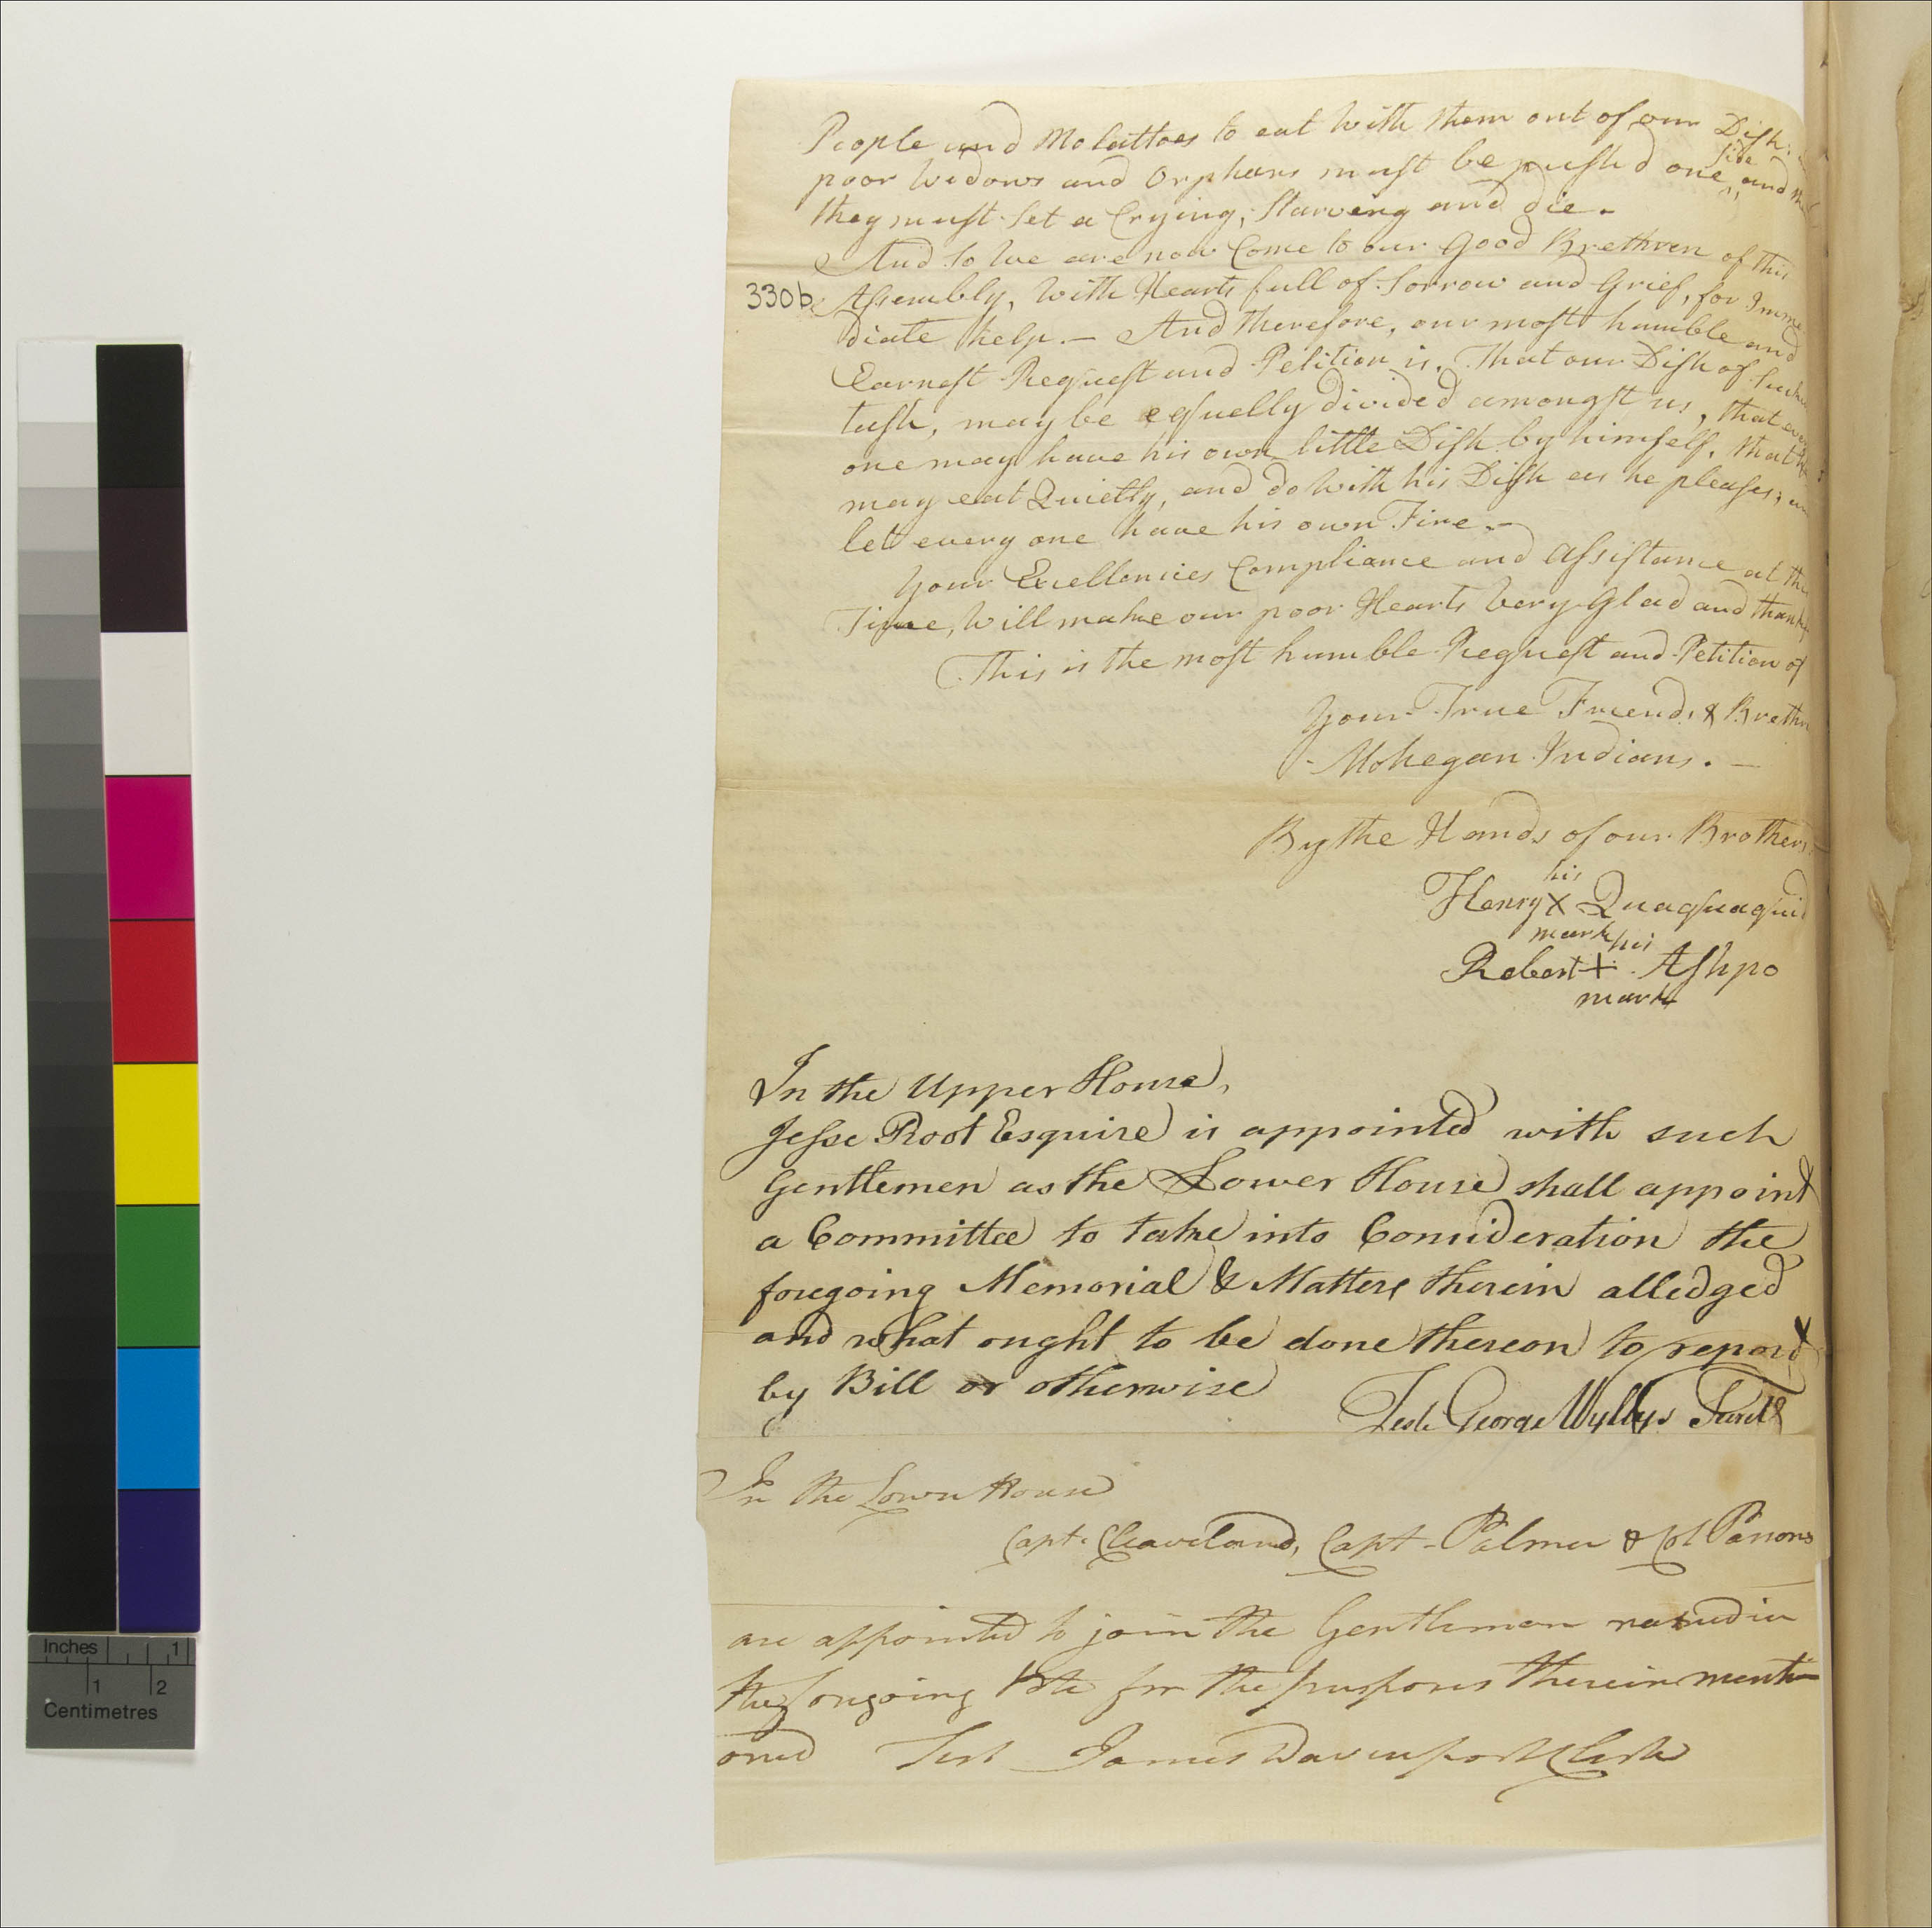 People and Molattoes to eat with them out of our Dish,
side
poor Widows and Orphans must be pushd one ^ and
they must Set a Crying, Starveing and die.
And so we are now Come to our Good Brethren of this
330b Assembly, With Hearts full of Sorrow and Grief, for Imme
diate help.— And therefore, our most humble and
Earnest Request and Petition is, That our Dish of Suckū
tush, may be equelly divided amongst us, that every
one may have his own little Dish by himself, that he
may eat Quietly, and do With his Dish as he pleases;
let every one have his own Fire.—
Your Exellencies Compliance and Assistance at this
Time, Will make our poor Hearts Very Glad and thankful
This is the most humble Request and Petition of
Your True Friends & Brethn
Mohegan Indians.—
By the Hands of our Brothers
his
Henry X Quaquaquid
mark
his
Robert + Ashpo
mark
In the Upper House,
Jesse Root Esquire is appointed with such
Gentlemen as the Lower House shall appoint
a Committee to take into Consideration the
foregoing Memorial & Matters therein alledged
and what ought to be done thereon to report
by Bill or otherwise
Test George Wyllys Secretʸ
In the Lower House
Capt. Cleaveland, Capt. Palmer & Col Parsons
are appointed to join the Gentleman named in
the foregoing Vote for the purposes therein menti
oned Test James Davenport Clerk
Inches 1
1 2
Centimetres